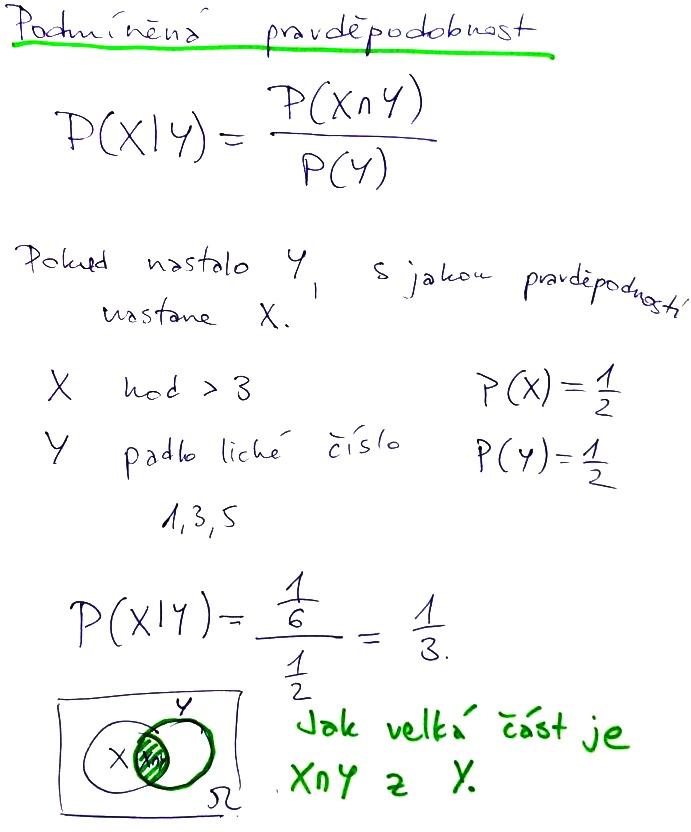 Podmíněná pravděpodobnost
P(X|Y) = P(X∩Y) / P(Y)
Pokud nastalo Y, s jakou pravděpodností
nastane X.
X hod > 3 P(X) = 1/2
Y padlo liché číslo P(Y) = 1/2
1,3,5
P(X|Y) = 1/6 / 1/2 = 1/3.
Y
X X∩Y
Ω
Jak velká část je
X∩Y z Y.